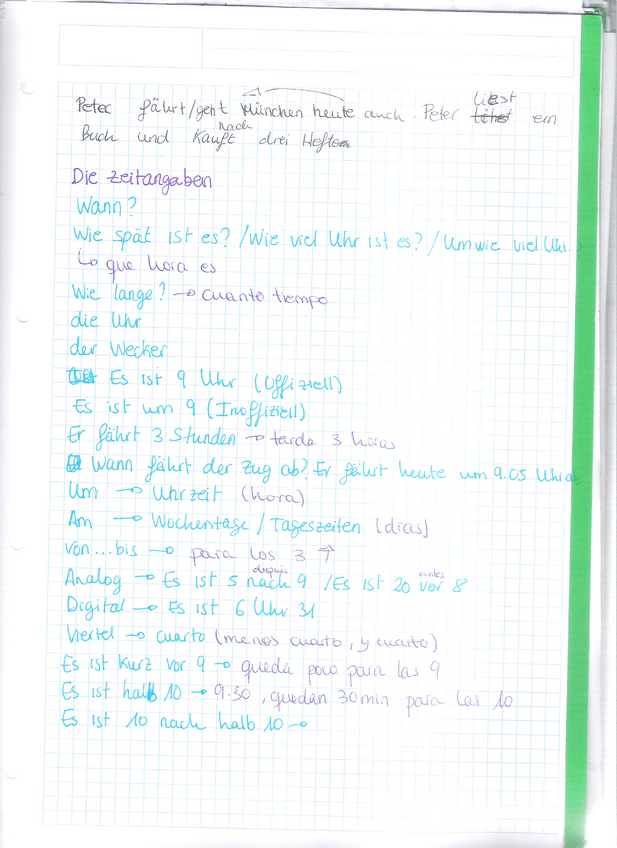 Peter fährt/geht München heute auch. Peter liest ein
Buch und kauft nach drei Hefte
Die Zeitangaben
Wann?
Wie spät ist es? /Wie viel Uhr ist es? / Um wie viel Uhr
Lo que hora es
Wie lange? → cuanto tiempo
die Uhr
der Wecker
Es ist 9 Uhr (Offiziell)
Es ist um 9 (Inoffiziell)
Er fährt 3 Stunden → tarda 3 horas
Wann fährt der Zug ab? Er fährt heute um 9.05 Uhr ab
Um → Uhrzeit (hora)
Am → Wochentage / Tageszeiten (dias)
von...bis → para los 3 ↑
después antes
Analog → Es ist 5 nach 9 /Es ist 20 vor 8
Digital → Es ist 6 Uhr 31
Viertel → cuarto (menos cuarto, y cuarto)
Es ist kurz vor 9 → queda poco para las 9
Es ist halb 10 → 9:30, quedan 30min para las 10
Es ist 10 nach halb 10 →